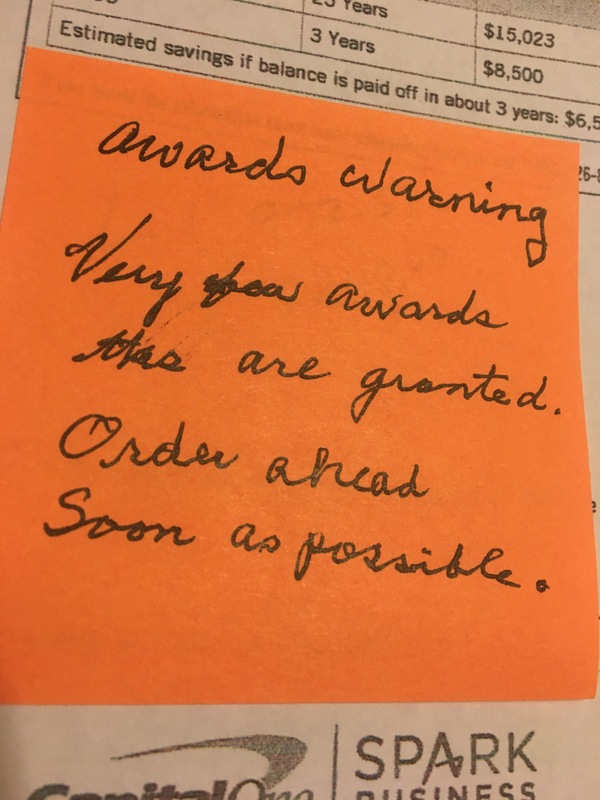 25 Years
$15,023
3 Years
$8,500
Estimated savings if balance is paid off in about 3 years: $6,5
26-8
Awards Warning
Very few awards
are granted.
Order ahead
Soon as possible.
Capital One
SPARK
BUSINESS